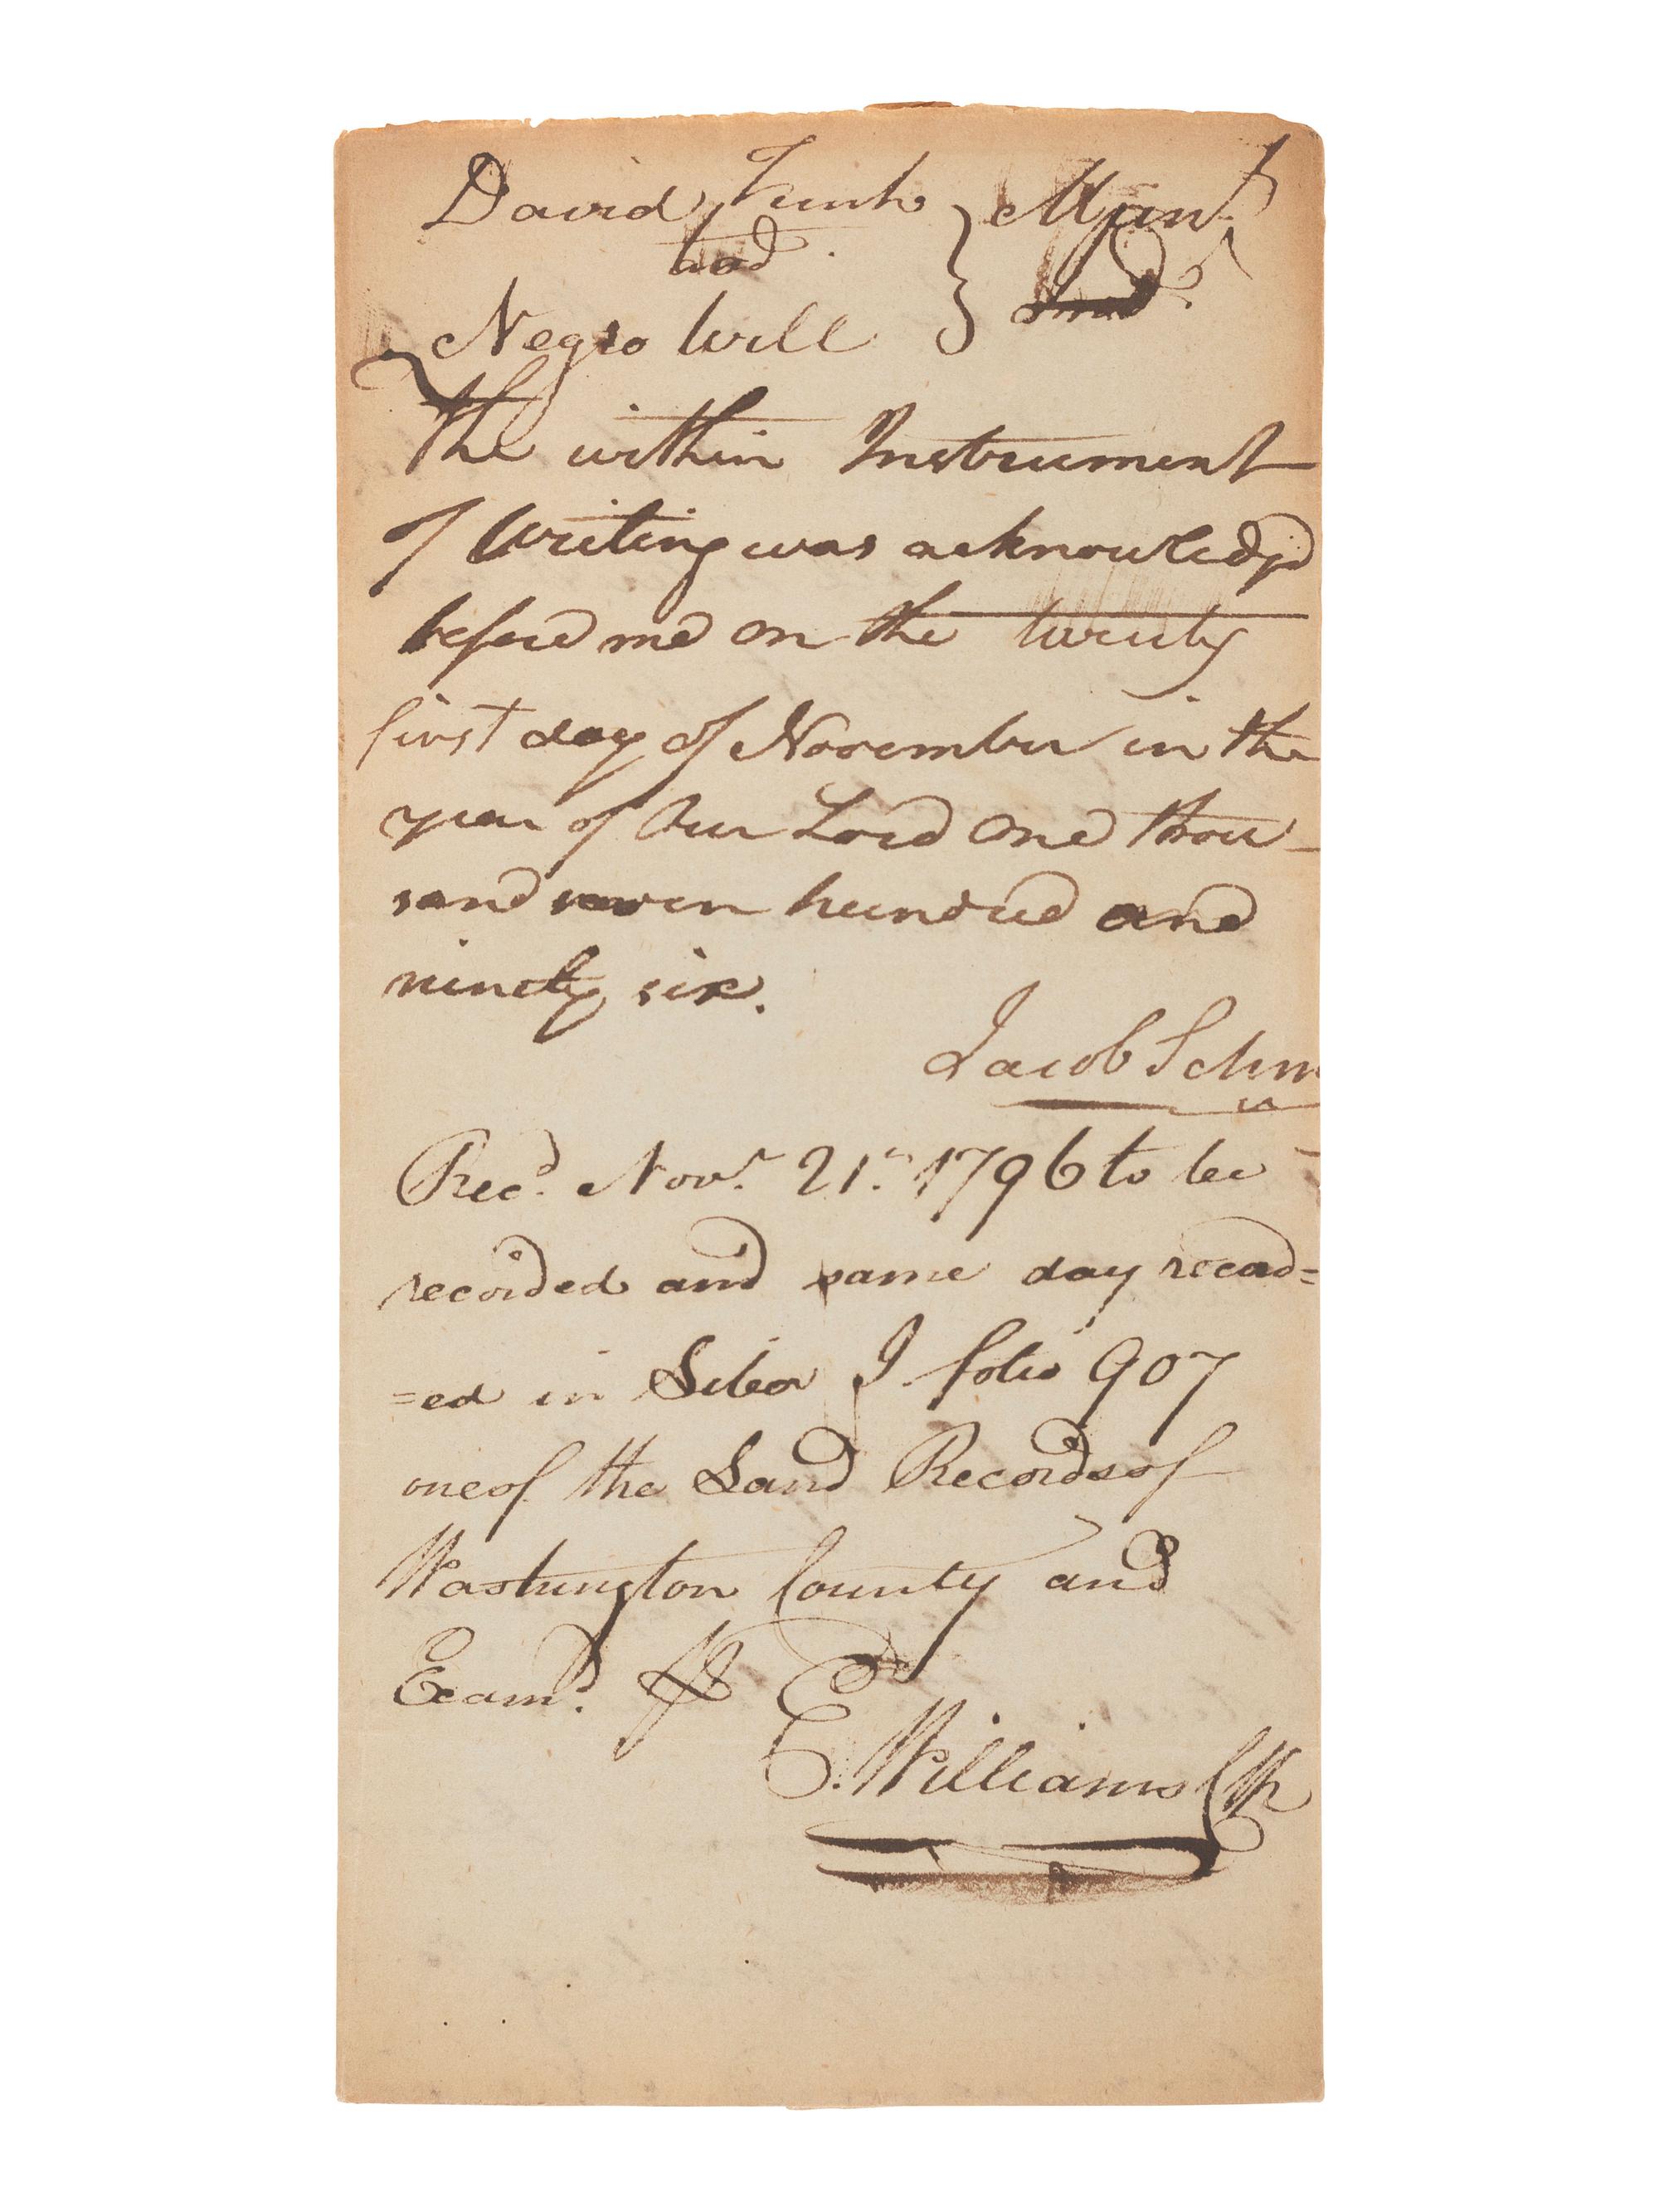 David Funk } Man.t
and
Negro Will
the within Instrument
of writing was acknowledg'd
before me on the twenty
first day of November in the
year of Our Lord one thou-
sand seven hundred and
ninety six.
Jacob Schn
Rec.d Nov.r 21.st 1796 to be
recorded and same day record=
=ed in Liber J folio 907
one of the Land Records of
Washington County and
Exam.d
E. Williams Clk